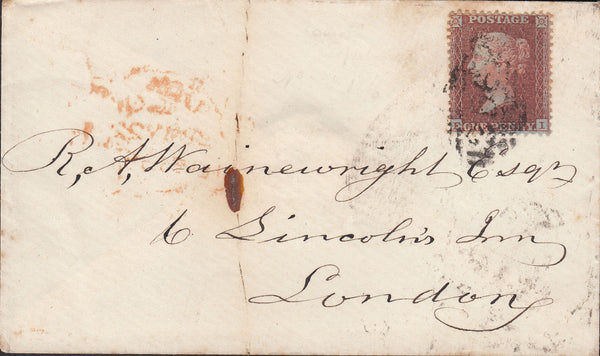 POSTAGE
ONE PENNY I
R. A. Wainewright Esqr
6 Lincoln's Inn
London